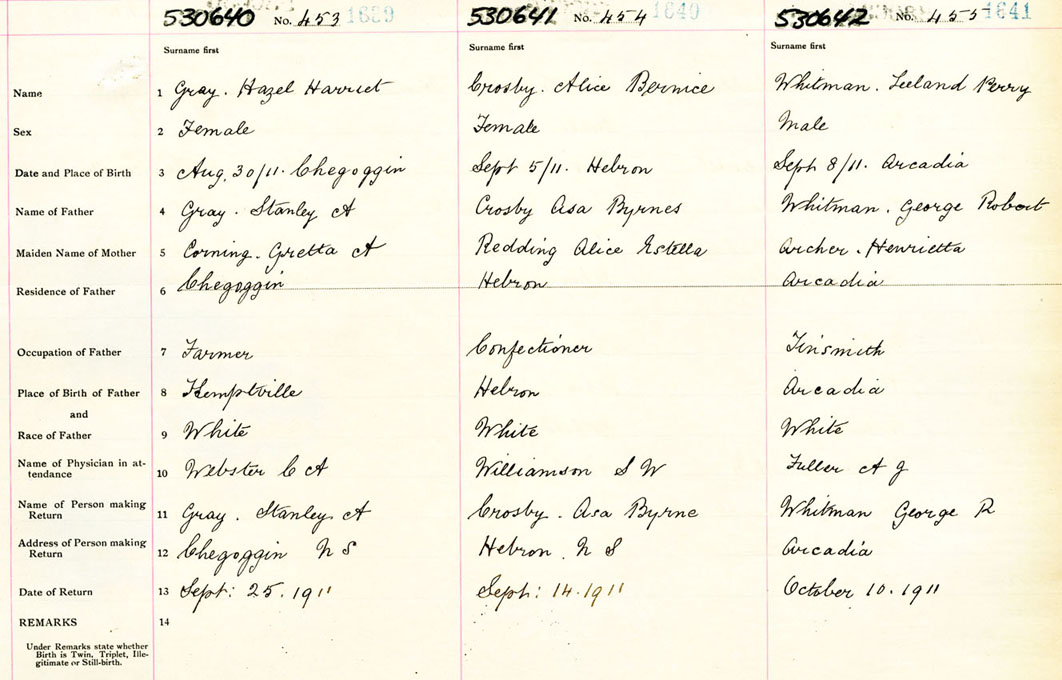 530640 No. 453 1639 530641 No. 454 1640 530642 No. 455 1641
Surname first Surname first Surname first
Name 1 Gray. Hazel Harriet Crosby. Alice Bernice Whitman. Leeland Perry
Sex 2 Female Female Male
Date and Place of Birth 3 Aug. 30/11. Chegoggin Sept 5/11. Hebron Sept 8/11. Arcadia
Name of Father 4 Gray. Stanley A Crosby Asa Byrnes Whitman. George Robert
Maiden Name of Mother 5 Corning. Gretta A Redding Alice Estella Archer. Henrietta
Residence of Father 6 Chegoggin Hebron Arcadia
Occupation of Father 7 Farmer Confectioner Tinsmith
Place of Birth of Father 8 Kemptville Hebron Arcadia
and
Race of Father 9 White White White
Name of Physician in at-
tendance 10 Webster C A Williamson S W Fuller A J
Name of Person making
Return 11 Gray. Stanley A Crosby. Asa Byrne Whitman George R
Address of Person making
Return 12 Chegoggin N S Hebron. N S Arcadia
Date of Return 13 Sept: 25. 1911 Sept: 14. 1911 October 10. 1911
REMARKS 14
Under Remarks state whether
Birth is Twin, Triplet, Ille-
gitimate or Still-birth.